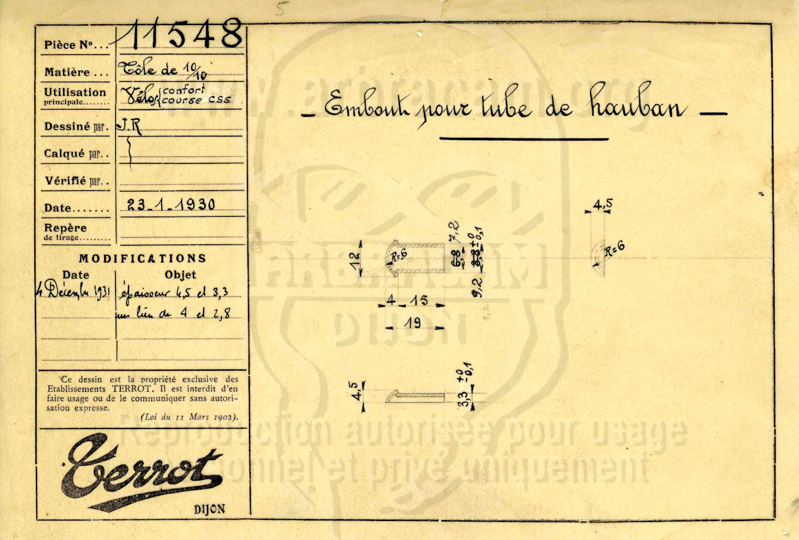 5
Pièce Nº... 11548
Matière... Tôle de 10/10
Utilisation principale........ Vélos confort
course css
Dessiné par. J.R
Calqué par..
Vérifié par..
Date....... 23-1-1930
Repère
de tirage........
MODIFICATIONS
Date Objet
4 Décembre 1931 épaisseur 4,5 et 3,3
au lieu de 4 et 2,8
Ce dessin est la propriété exclusive des
Etablissements TERROT. Il est interdit d'en
faire usage ou de le communiquer sans autori-
sation expresse.
(Loi du 11 Mars 1902).
Terrot
DIJON
— Embout pour tube de hauban —
4,5
R=6
12
R=6
6,8 7,2
9,2 8,8 ±0 -0,1
4 15
19
4,5
3,3 ±0 -0,1
ARBRACAM
DIJON
Reproduction autorisée pour usage
personnel et privé uniquement